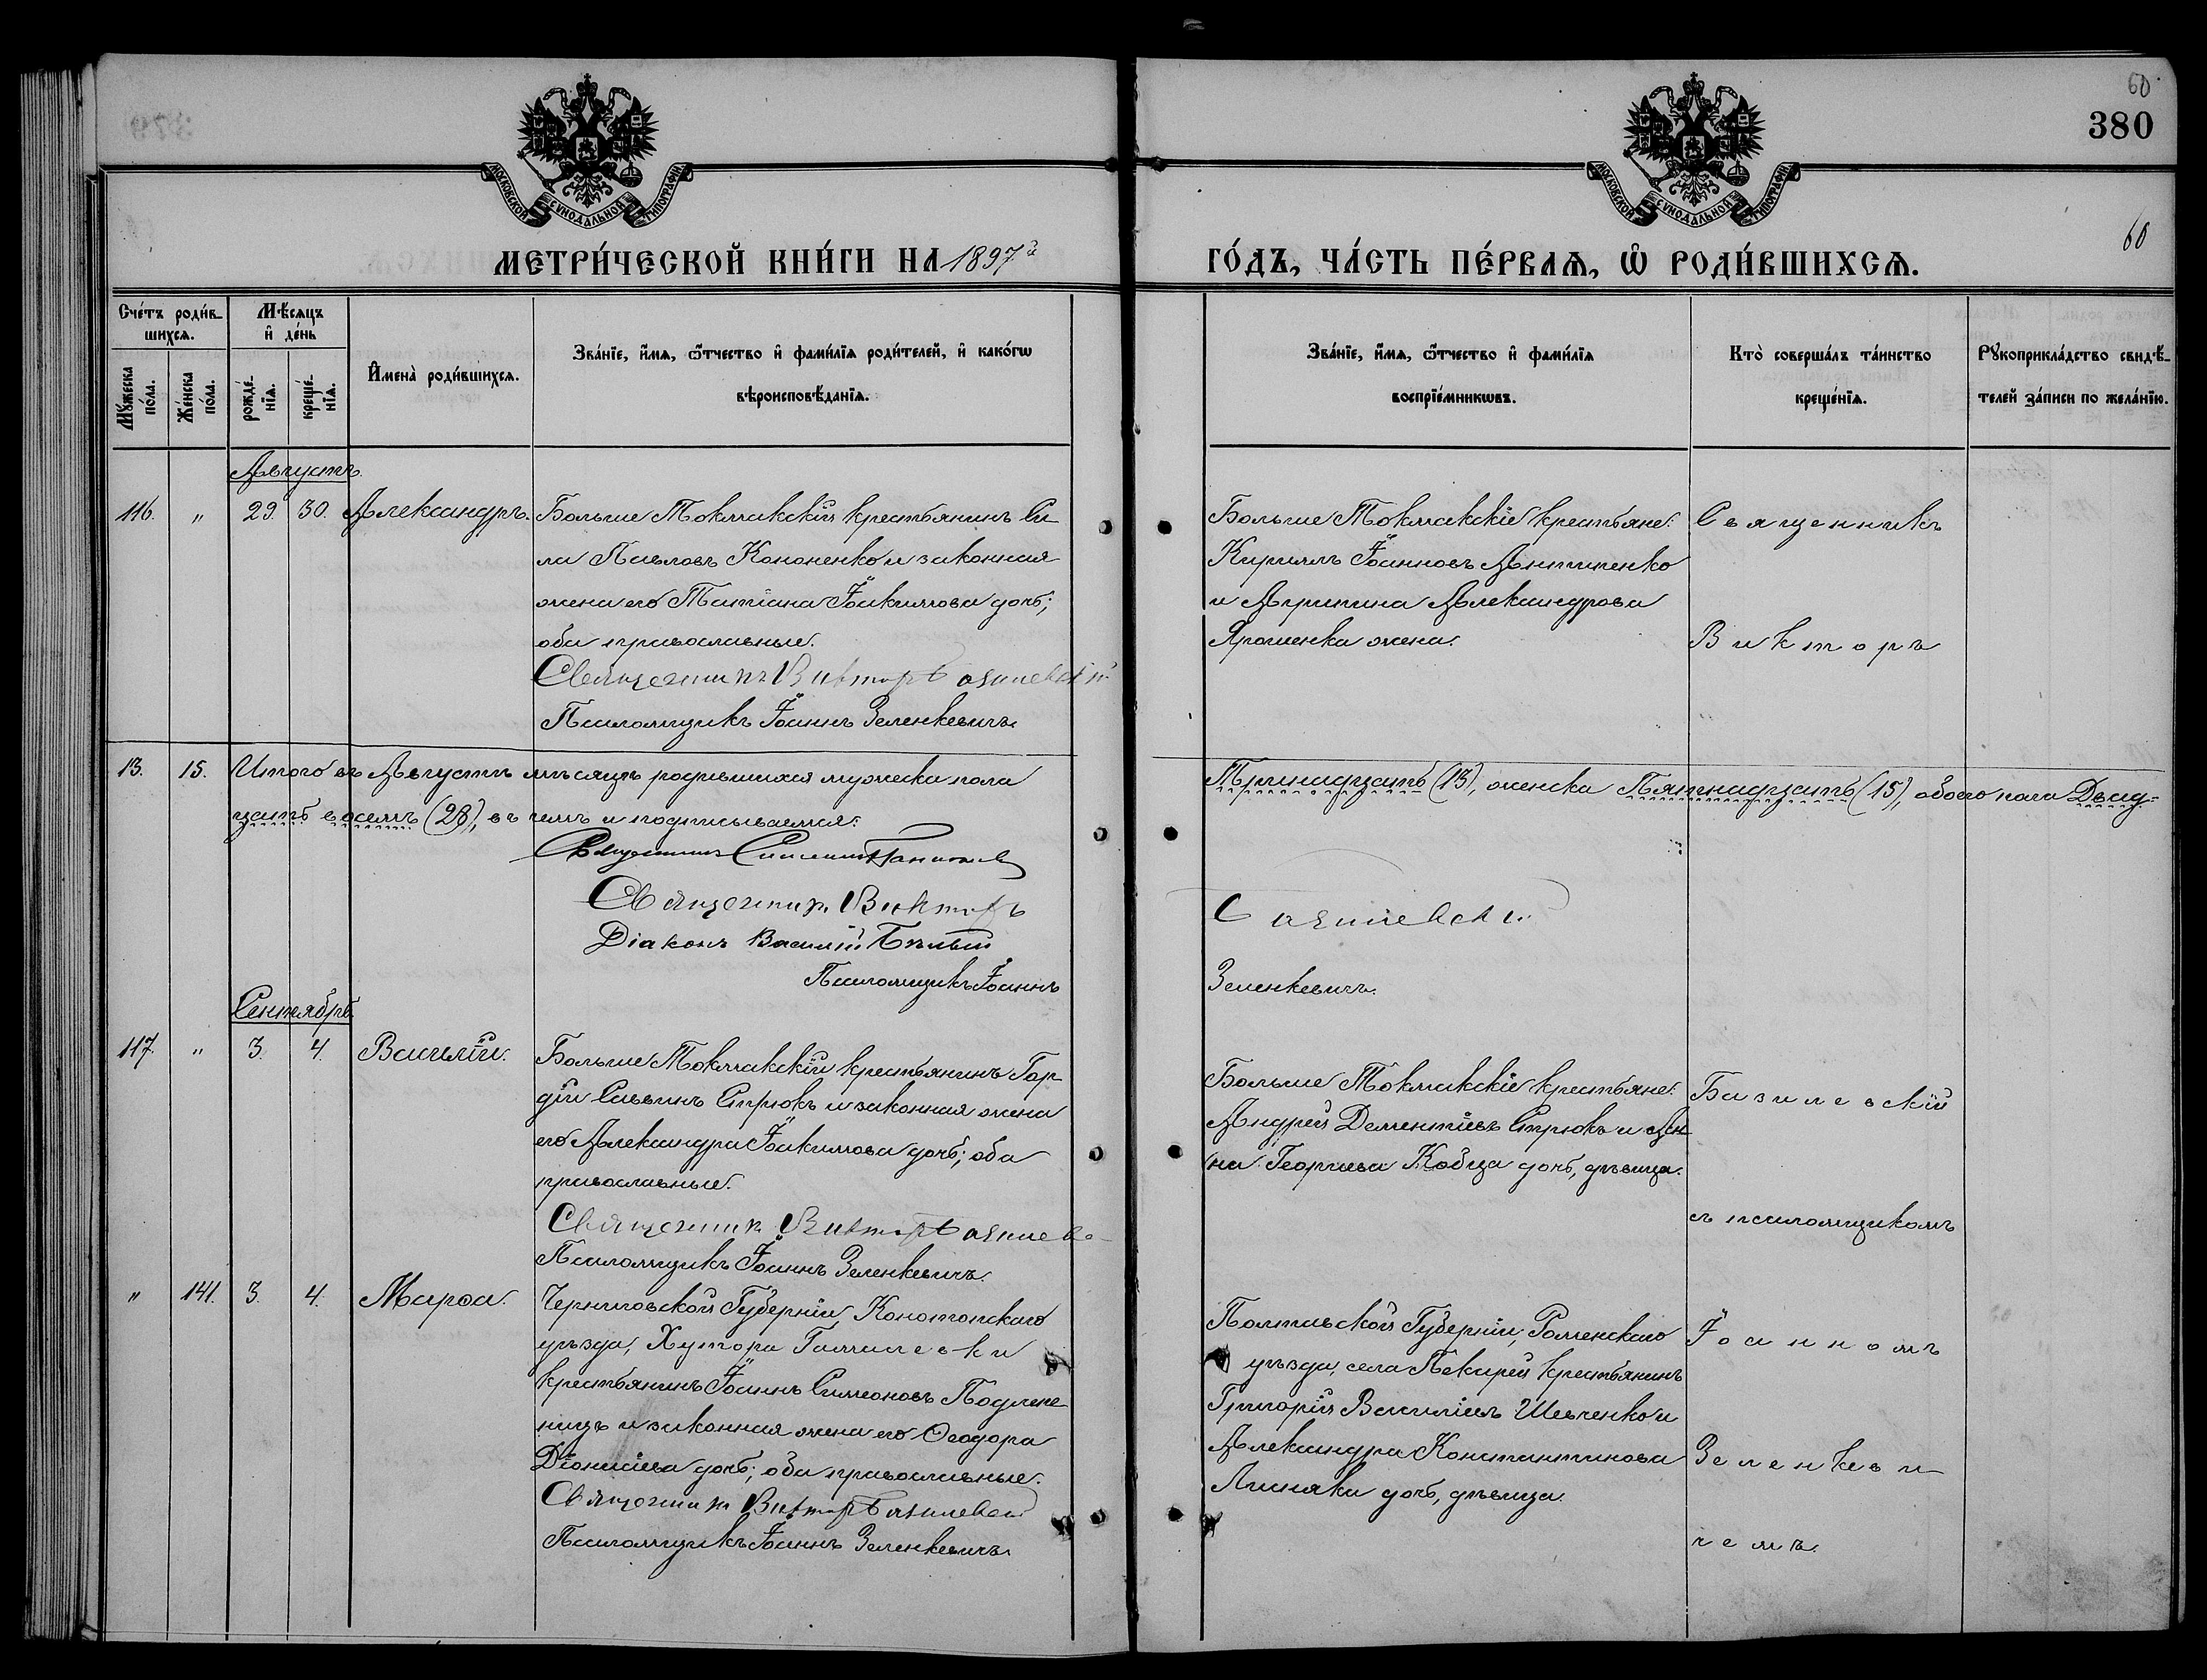 60
380
МОСКОВСКОЙ СѴНОДАЛЬНОЙ ТИПОГРАФІИ
МОСКОВСКОЙ СѴНОДАЛЬНОЙ ТИПОГРАФІИ
60
МЕТРИ́ЧЕСКОЙ КНИ́ГИ НА 1897й
ГО́ДЪ, ЧА́СТЬ ПЕ́РВАѦ, Ѡ҆ РОДИ́ВШИХСѦ.
Сче́тъ роди́в-
шихсѧ.
Мꙋ́жеска по́ла.
Же́нска по́ла.
Мѣ́сѧцъ
и҆ де́нь
рожде́-нїѧ.
креще́-нїѧ.
И҆мена̀ роди́вшихсѧ.
Зва́нїе, и҆́мѧ, ѻ҆́тчество и҆ фами́лїѧ роди́телей, и҆ како́гѡ
вѣроисповѣ́данїѧ.
Зва́нїе, и҆́мѧ, ѻ҆́тчество и҆ фами́лїѧ
воспрїе́мникѡвъ.
Кто̀ соверша́лъ та́инство
креще́нїѧ.
Рꙋкоприкла́дство свидѣ́-
телей за́писи по жела́нїю.
Августъ.
116. " 29. 30. Александръ.
Больше Токмакскій крестьянинъ Си
ла Павловъ Кононенко и законная
жена его Татіана Іоакимова дочь;
оба православные.
Священникъ Викторъ Базилевскій
Псаломщикъ Іоаннъ Зеленкевичъ.
Больше Токмакскіе крестьяне:
Кириллъ Іоанновъ Антипенко
и Агрипина Александрова
Ярошенка жена.
Священникъ
Викторъ
13. 15. Итого въ Августѣ мѣсяцѣ родившихся мужеска пола
Тринадцать (13), женска Пятнадцать (15), обоего пола Двад-
цать восемь (28), въ чемъ и подписываемся:
Священникъ
Священникъ Викторъ
Базилевскій
Діаконъ Василій Бѣлый
Псаломщикъ Іоаннъ
Зеленкевичъ.
Сентябрь.
117. " 3. 4. Василій.
Больше Токмакскій крестьянинъ Гор
дій Саввинъ Стрюкъ и законная жена
его Александра Іоакимова дочь; оба
православные.
Священникъ Викторъ Базилев
Псаломщикъ Іоаннъ Зеленкевичъ.
Больше Токмакскіе крестьяне:
Андрей Дементіевъ Стрюкъ и Ан
на Георгіева Кобца дочь, дѣвица.
Базилевскій
съ псаломщикомъ
" 141. 3. 4. Марѳа.
Черниговской Губерніи, Конотопскаго
уѣзда, Хутора
крестьянинъ Іоаннъ Симеоновъ Подлене
нецъ и законная жена его Ѳеодора
Діонисіева дочь; оба православные.
Священникъ Викторъ Базилевскій
Псаломщикъ Іоаннъ Зеленкевичъ.
Полтавской Губерніи, Роменскаго
уѣзда, села Пекарей крестьянинъ
Григорій Василіевъ Шевченко и
Александра Константинова
Лисняка дочь, дѣвица.
Іоанномъ
Зеленкеви
чемъ.